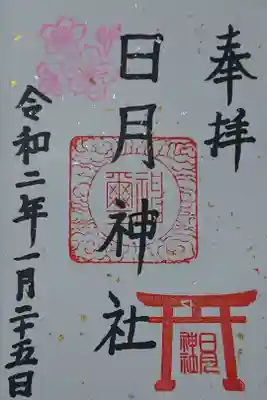 奉拝
日月神社
日月神社
令和二年一月二十五日